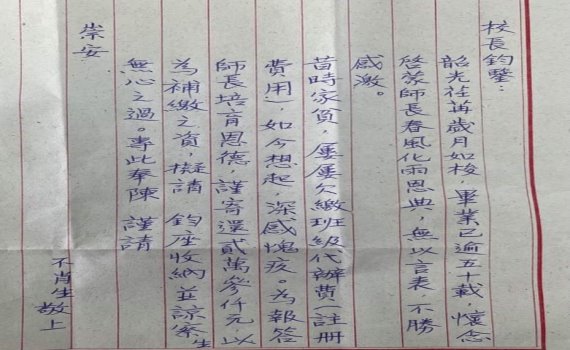 校長鈞鑒：
韶光荏苒歲月如梭，畢業已逾五十載，懷念
啓蒙師長春風化雨恩典，無以言表，不勝
感激。
當時家貧，屢屢欠繳班級代辦費，註冊
費用，如今想起，深感愧疚。為報答
師長培育恩德，謹寄還貳萬參仟元，以
為補繳之資，擬請　鈞座收納並諒察生
無心之過。專此奉陳　謹請
崇安
不肖生敬上